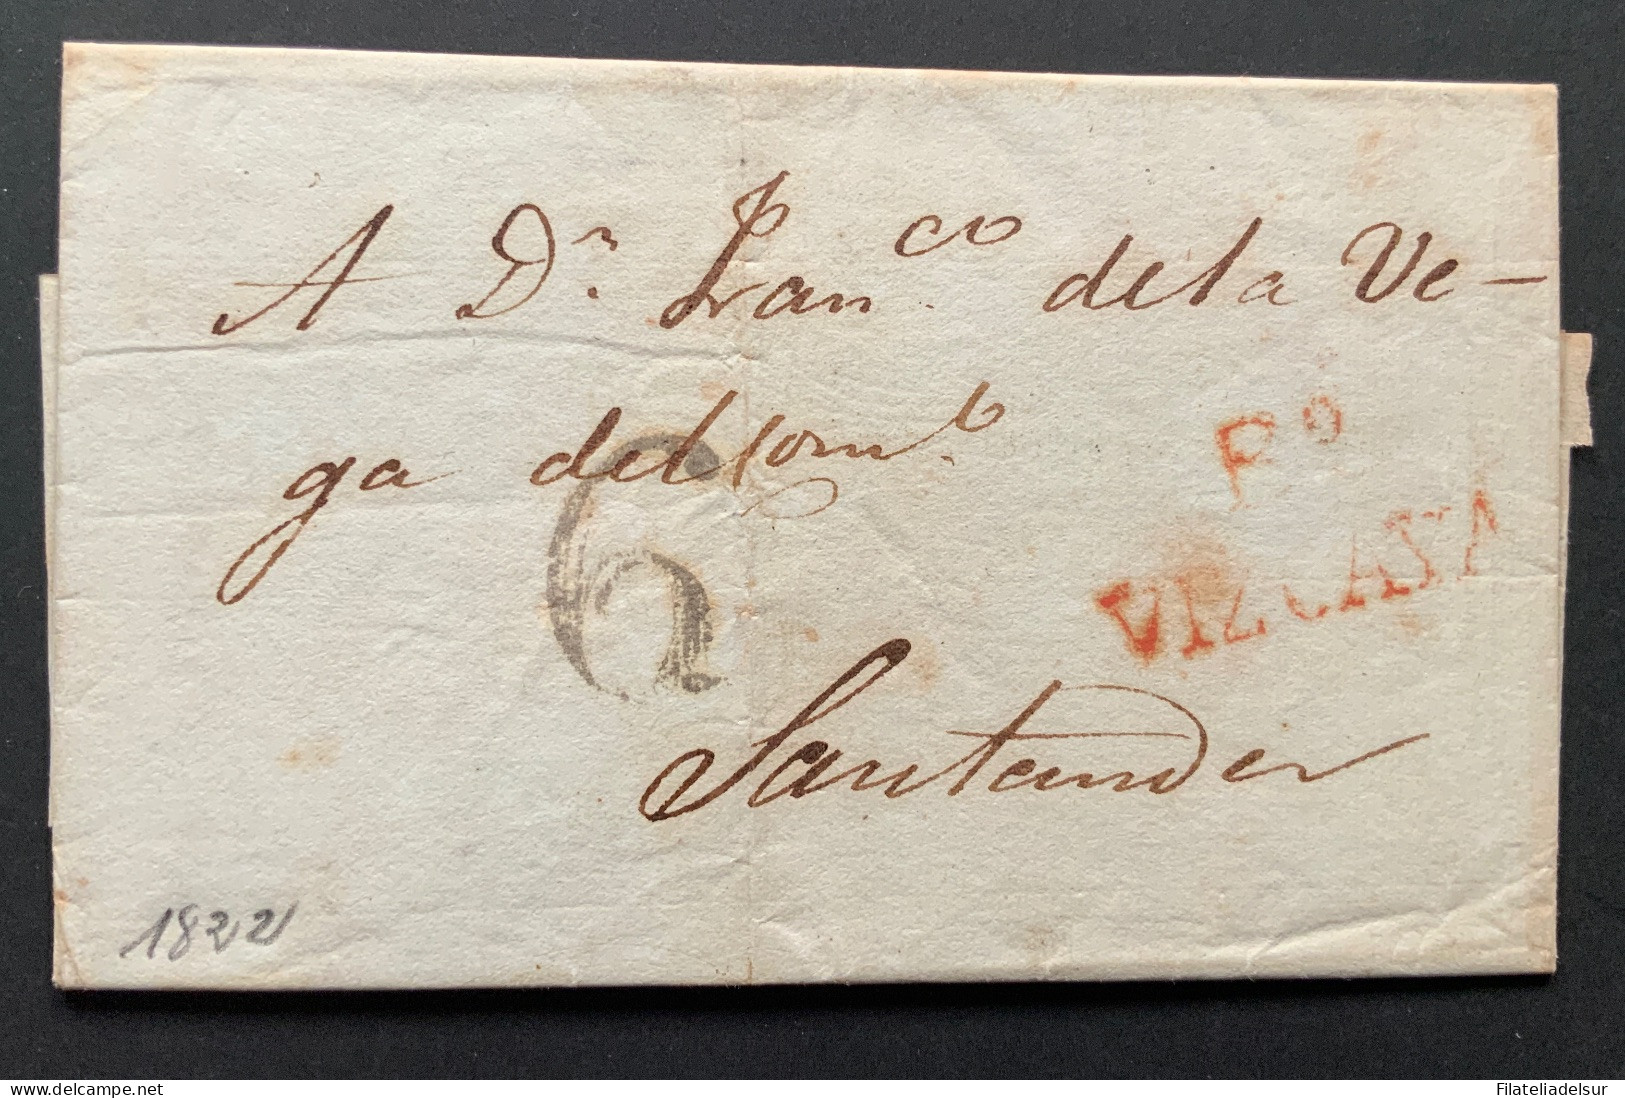 A Dn. Franco. de la Ve-
ga del Comb.
6
Pº
VIZCAYA
Santander
1822
delcampe.net
Filateliadelsur